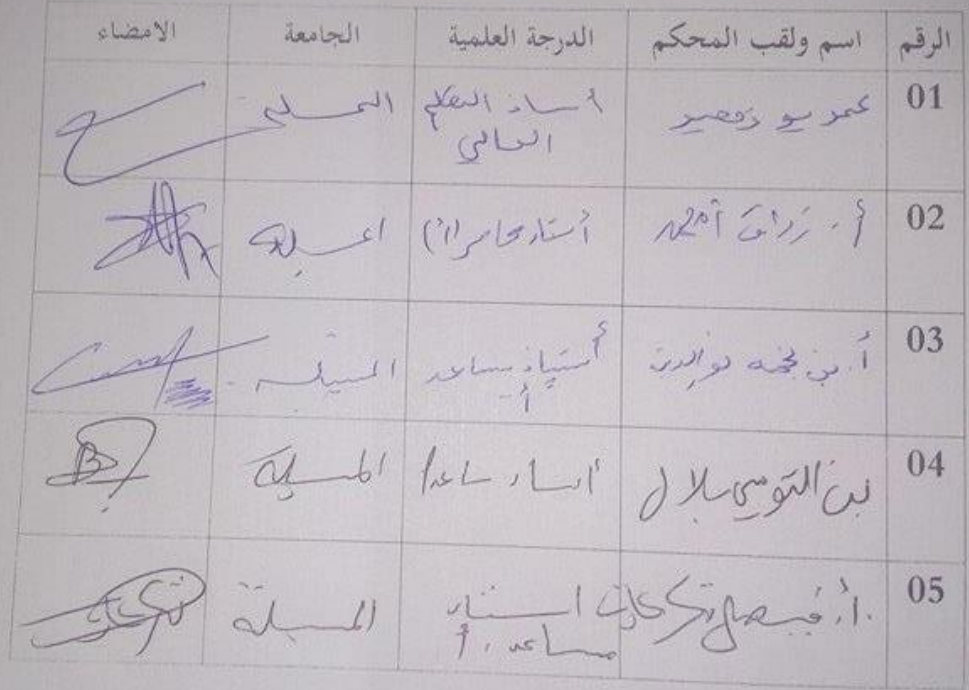 الرقم اسم ولقب المحكم الدرجة العلمية الجامعة الامضاء
01 أستاذ التعليم
العالي
02 أ. زواق أمحمد أستاذ محاضر (أ) المسيلة
03 أ. بن نجمة نور الدين أستاذ مساعد المسيلة
أ
04 بن التومي بلال أستاذ مساعد أ المسيلة
05 أ. فيصل تركات استاذ المسيلة
مساعد . أ